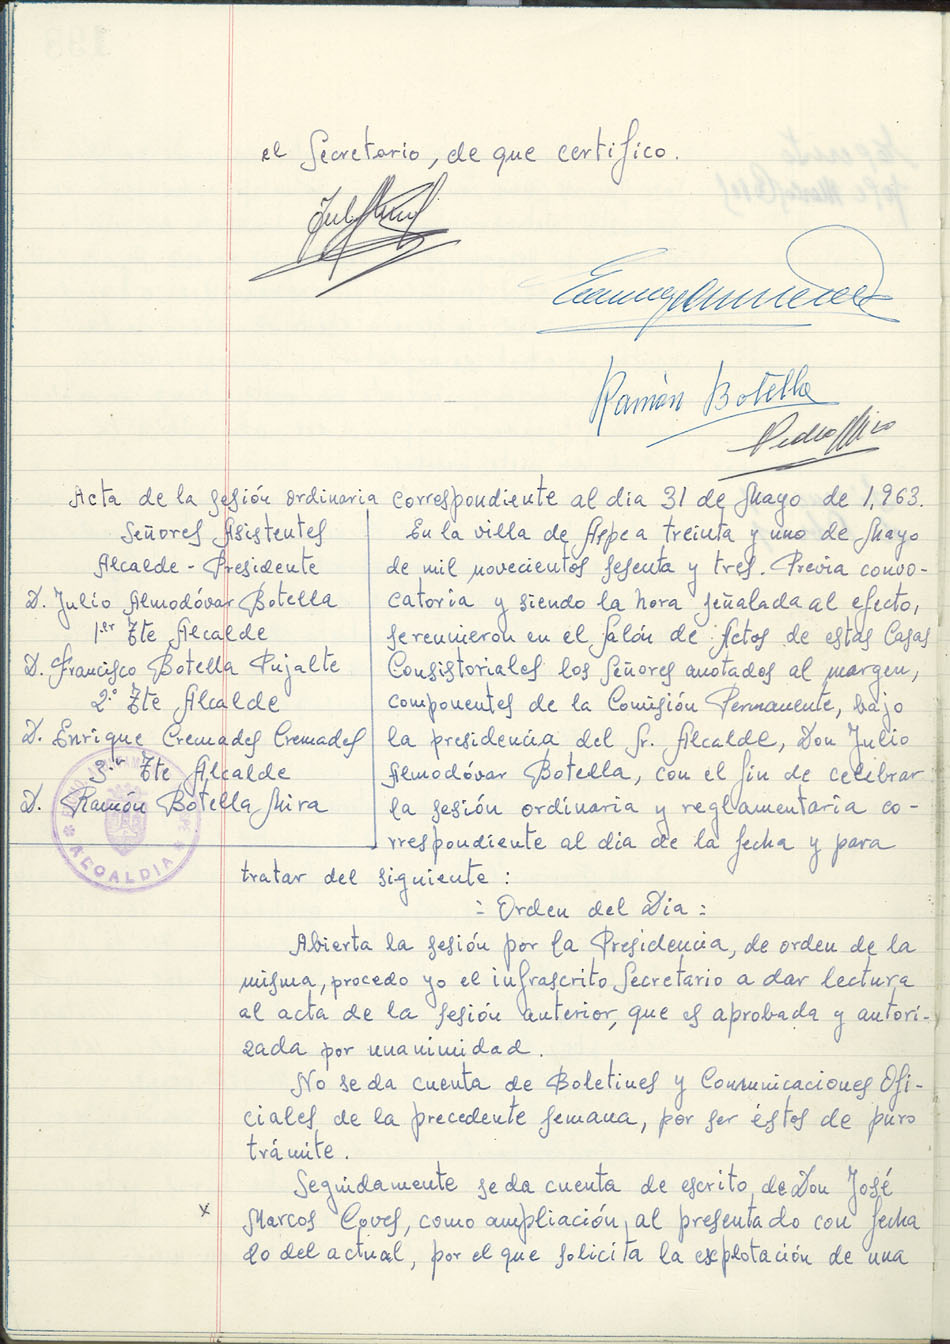 el Secretario, de que certifico.
Ramón Botella
Pedro Mira
Acta de la sesión ordinaria correspondiente al dia 31 de Mayo de 1,963.
Señores Asistentes
Alcalde-Presidente
D. Julio Almodóvar Botella
1er Tte Alcalde
D. Francisco Botella Pujalte
2º Tte Alcalde
D. Enrique Cremades Cremades
3er Tte Alcalde
D. Ramón Botella Mira
ALCALDIA
En la villa de Aspe a treinta y uno de Mayo
de mil novecientos sesenta y tres. Previa convo-
catoria y siendo la hora señalada al efecto,
se reunieron en el Salón de Actos de estas Casas
Consistoriales los Señores anotados al margen,
componentes de la Comisión Permanente, bajo
la presidencia del Sr. Alcalde, Don Julio
Almodóvar Botella, con el fin de celebrar
la sesión ordinaria y reglamentaria co-
rrespondiente al dia de la fecha y para
tratar del siguiente:
= Orden del Dia =
Abierta la sesión por la Presidencia, de orden de la
misma, procedo yo el infrascrito Secretario a dar lectura
al acta de la sesión anterior, que es aprobada y autori-
zada por unanimidad.
No se da cuenta de Boletines y Comunicaciones Ofi-
ciales de la precedente semana, por ser éstos de puro
trámite.
Seguidamente se da cuenta de escrito de Don José
x Marcos Coves, como ampliación, al presentado con fecha
del actual, por el que solicita la explotación de una